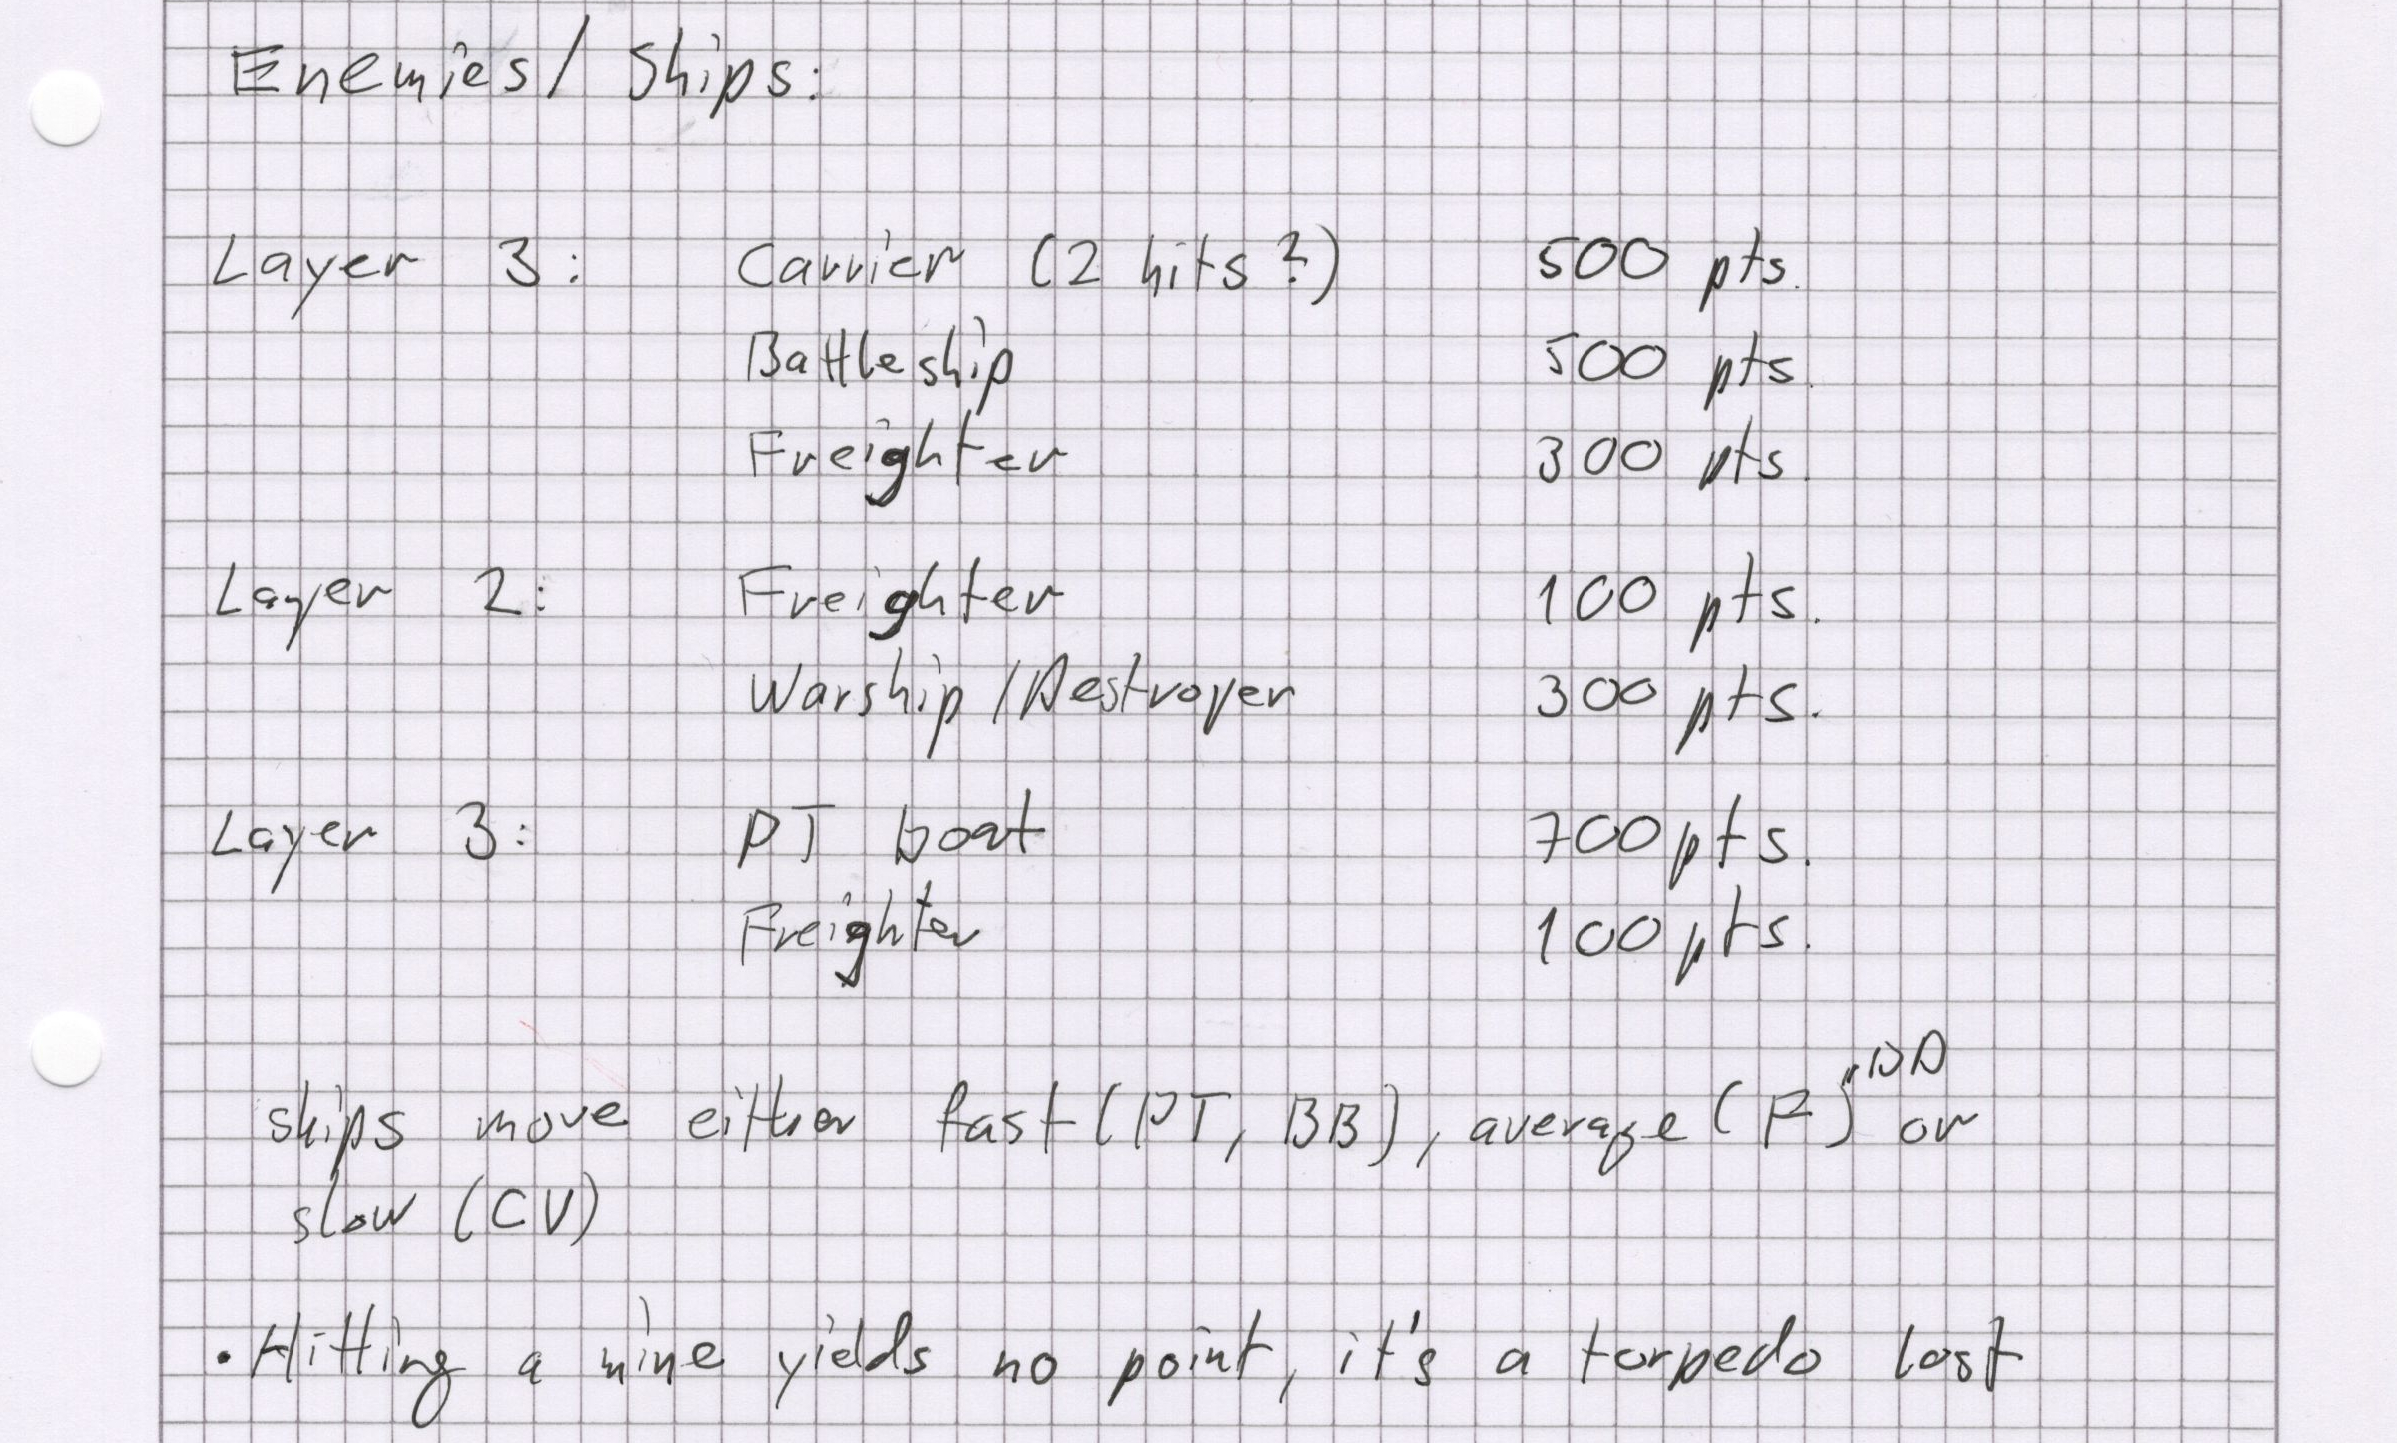 Enemies/Ships:
Layer 3: Carrier (2 hits?) 500 pts.
Battleship 500 pts.
Freighter 300 pts.
Layer 2: Freighter 100 pts.
Warship/Destroyer 300 pts.
Layer 3: PT boat 700 pts.
Freighter 100 pts.
ships move either fast (PT, BB), average (F) "DD or
slow (CV)
• Hitting a mine yields no point, it's a torpedo lost